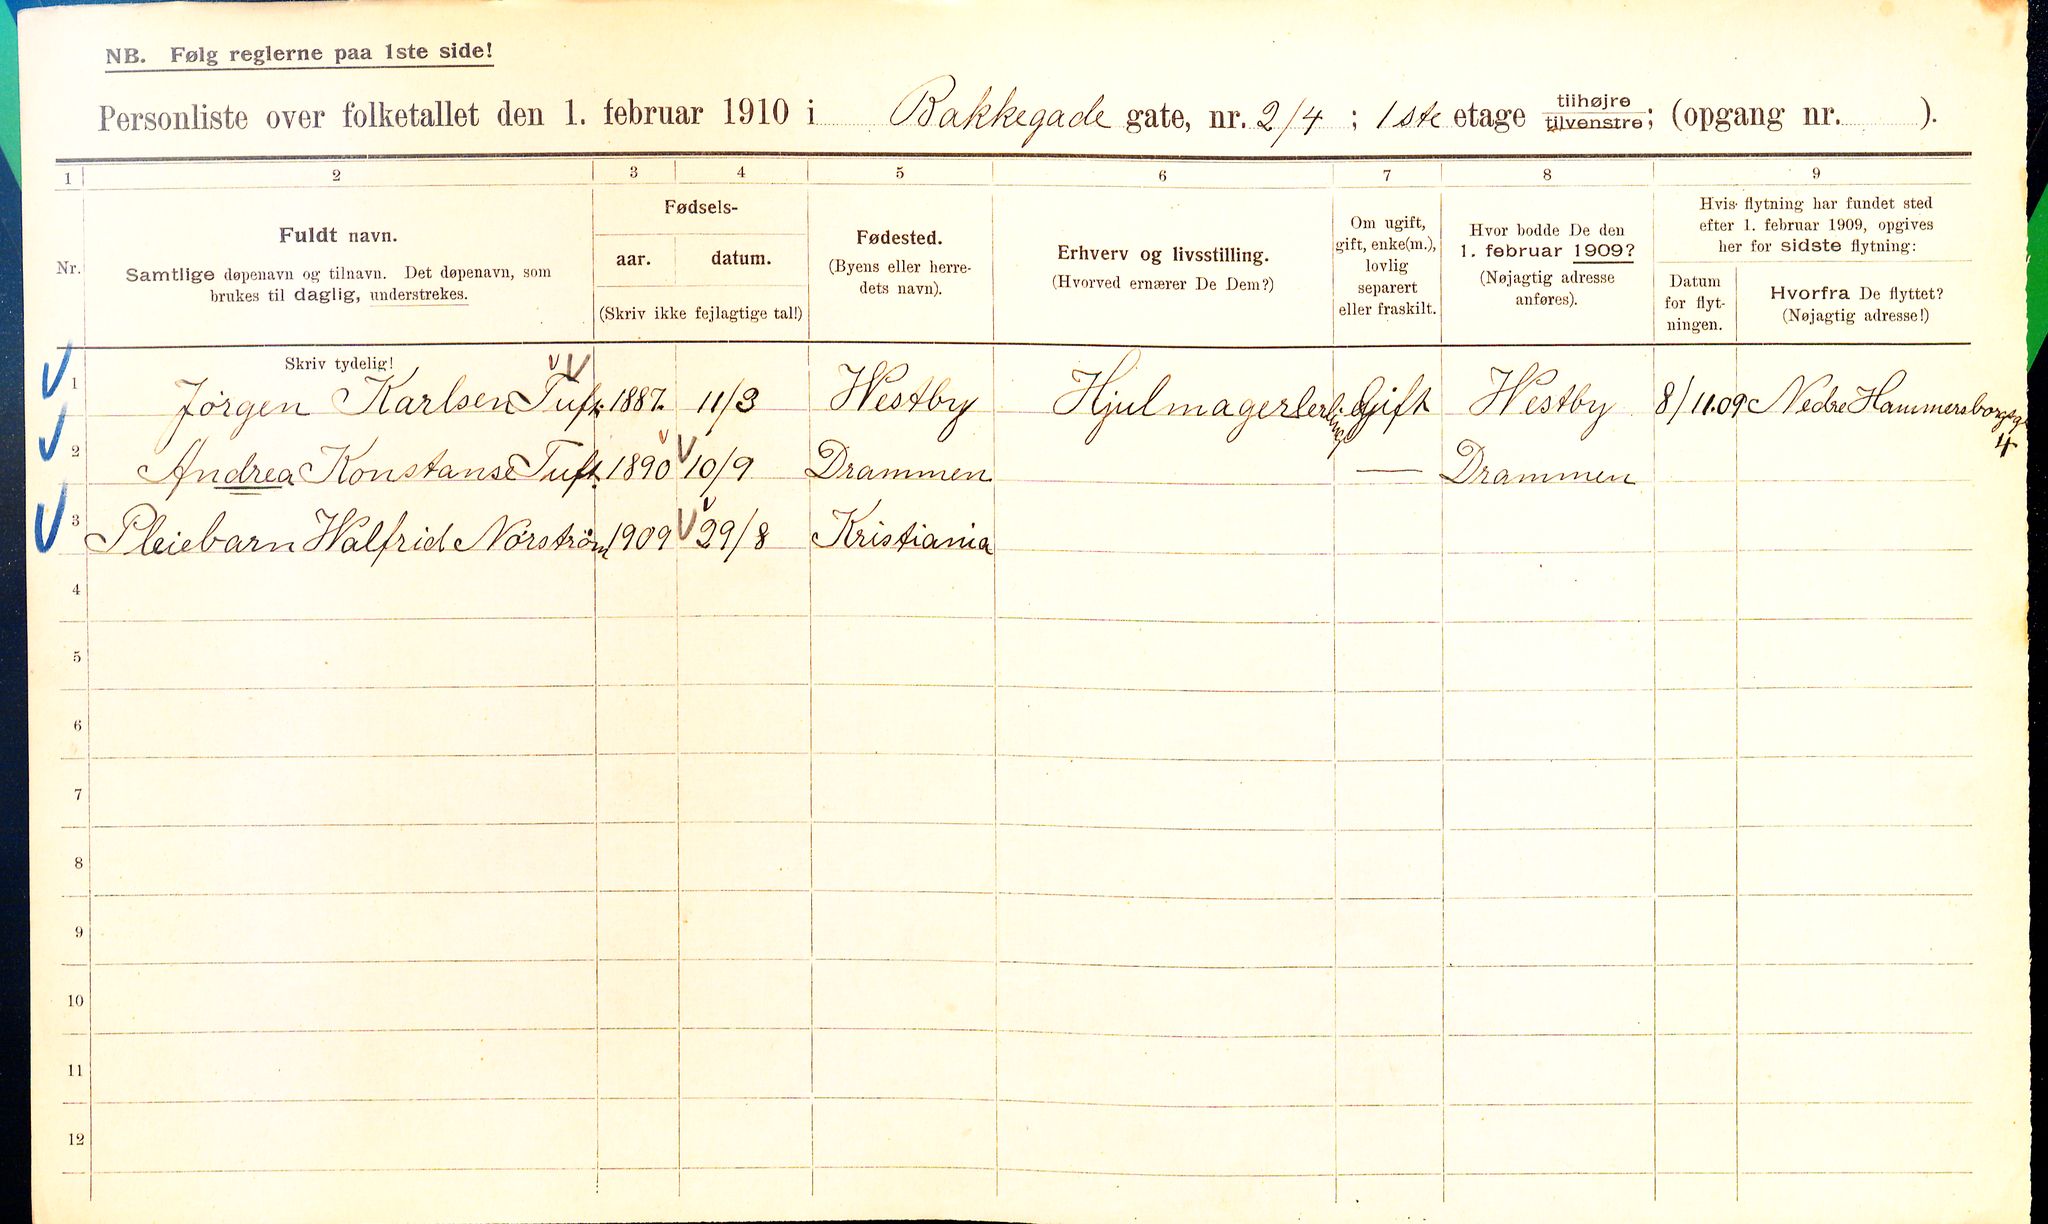 NB. Følg reglerne paa 1ste side!
Personliste over folketallet den 1. februar 1910 i Bakkegade gate, nr. 2/4 ; 1ste etage tilhøjre tilvenstre; (opgang nr. ).
1 2 3 4 5 6 7 8 9
Nr.
Fuldt navn.
Samtlige døpenavn og tilnavn. Det døpenavn, som
brukes til daglig, understrekes.
Skriv tydelig!
Fødsels-
aar. datum.
(Skriv ikke fejlagtige tal!)
Fødested.
(Byens eller herre-
dets navn).
Erhverv og livsstilling.
(Hvorved ernærer De Dem?)
Om ugift,
gift, enke(m.),
lovlig
separert
eller fraskilt.
Hvor bodde De den
1. februar 1909?
(Nøjagtig adresse
anføres).
Hvis flytning har fundet sted
efter 1. februar 1909, opgives
her for sidste flytning:
Datum
for flyt-
ningen.
Hvorfra De flyttet?
(Nøjagtig adresse!)
1 Jørgen Karlsen Tuft. 1887. 11/3 Westby Hjulmagerlerling Gift Westby 8/11.09 Nedre Hammersborgsg. 4
2 Andrea Konstanse Tuft. 1890 10/9 Drammen — Drammen
3 Pleiebarn Walfrid Nørstrøm 1909 29/8 Kristiania
4
5
6
7
8
9
10
11
12